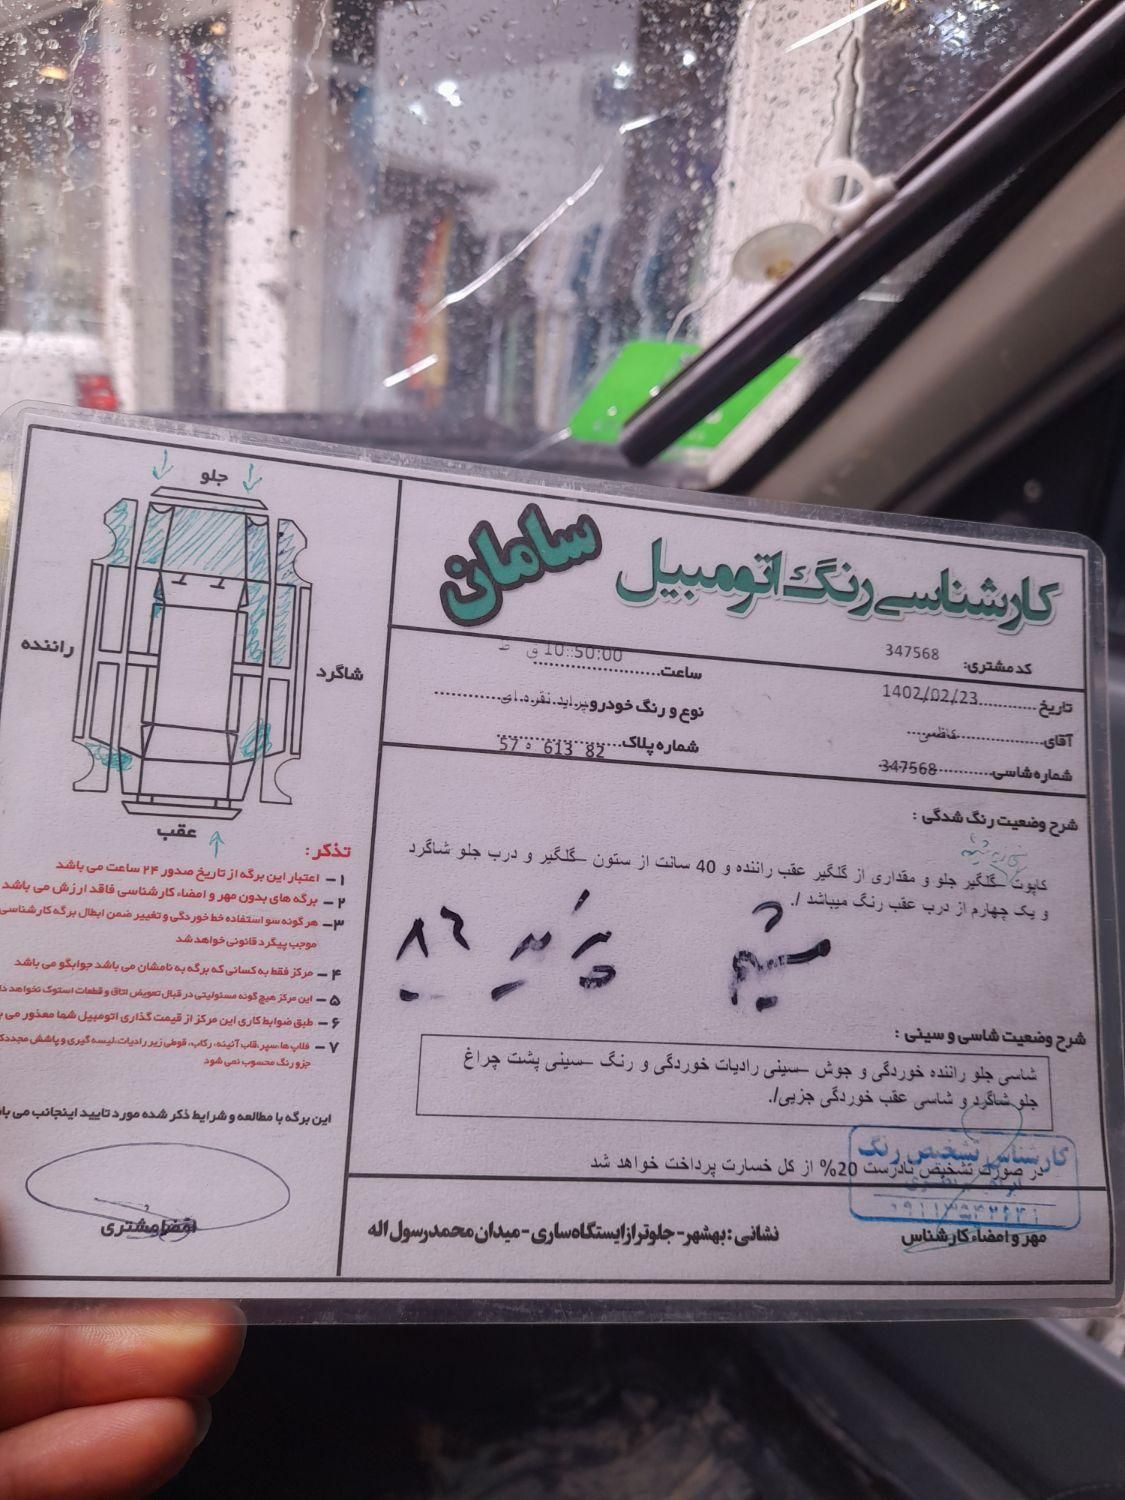 کارشناسی رنگ اتومبیل سامان
کد مشتری: 347568
ساعت 10:50:00 ق ظ
تاریخ 1402/02/23
نوع و رنگ خودرو پراید نقره ای
آقای کاظمی
شماره پلاک 82 613 ه 57
شماره شاسی 347568
شرح وضعیت رنگ شدگی :
کاپوت –گلگیر جلو و مقداری از گلگیر عقب راننده و 40 سانت از ستون –گلگیر و درب جلو شاگرد
و یک چهارم از درب عقب رنگ میباشد /.
پراید ۸۶
شرح وضعیت شاسی و سینی :
شاسی جلو راننده خوردگی و جوش –سینی رادیات خوردگی و رنگ –سینی پشت چراغ
جلو شاگرد و شاسی عقب خوردگی جزیی/.
در صورت تشخیص نادرست 20% از کل خسارت پرداخت خواهد شد
کارشناس تشخیص رنگ
مهر و امضاء کارشناس
نشانی : بهشهر - جلوتر از ایستگاه ساری - میدان محمد رسول اله
جلو
راننده
شاگرد
عقب
تذکر :
۱– اعتبار این برگه از تاریخ صدور ۲۴ ساعت می باشد
۲– برگه های بدون مهر و امضاء کارشناسی فاقد ارزش می باشد
۳– هر گونه سو استفاده خط خوردگی و تغییر ضمن ابطال برگه کارشناسی
موجب پیگرد قانونی خواهد شد
۴– مرکز فقط به کسانی که برگه به نامشان می باشد جوابگو می باشد
۵– این مرکز هیچ گونه مسئولیتی در قبال تعویض اتاق و قطعات استوک نخواهد دا
۶– طبق ضوابط کاری این مرکز از قیمت گذاری اتومبیل شما معذور می ب
۷– فلاپ ها، سپر، قاب آئینه، رکاب، قوطی زیر رادیات، لیسه گیری و پاشش مجدد
جزو رنگ محسوب نمی شود
این برگه با مطالعه و شرایط ذکر شده مورد تایید اینجانب می با
امضا مشتری